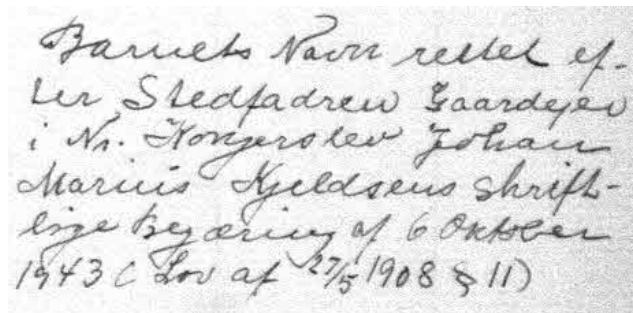 Barnets Navn rettet ef-
ter Stedfadren Gaardejer
i Nr. Kongerslev Johan
Marius Kjeldsens skrift-
lige Begæring af 6 Oktober
1943 (Lov af 27/5 1908 § 11)